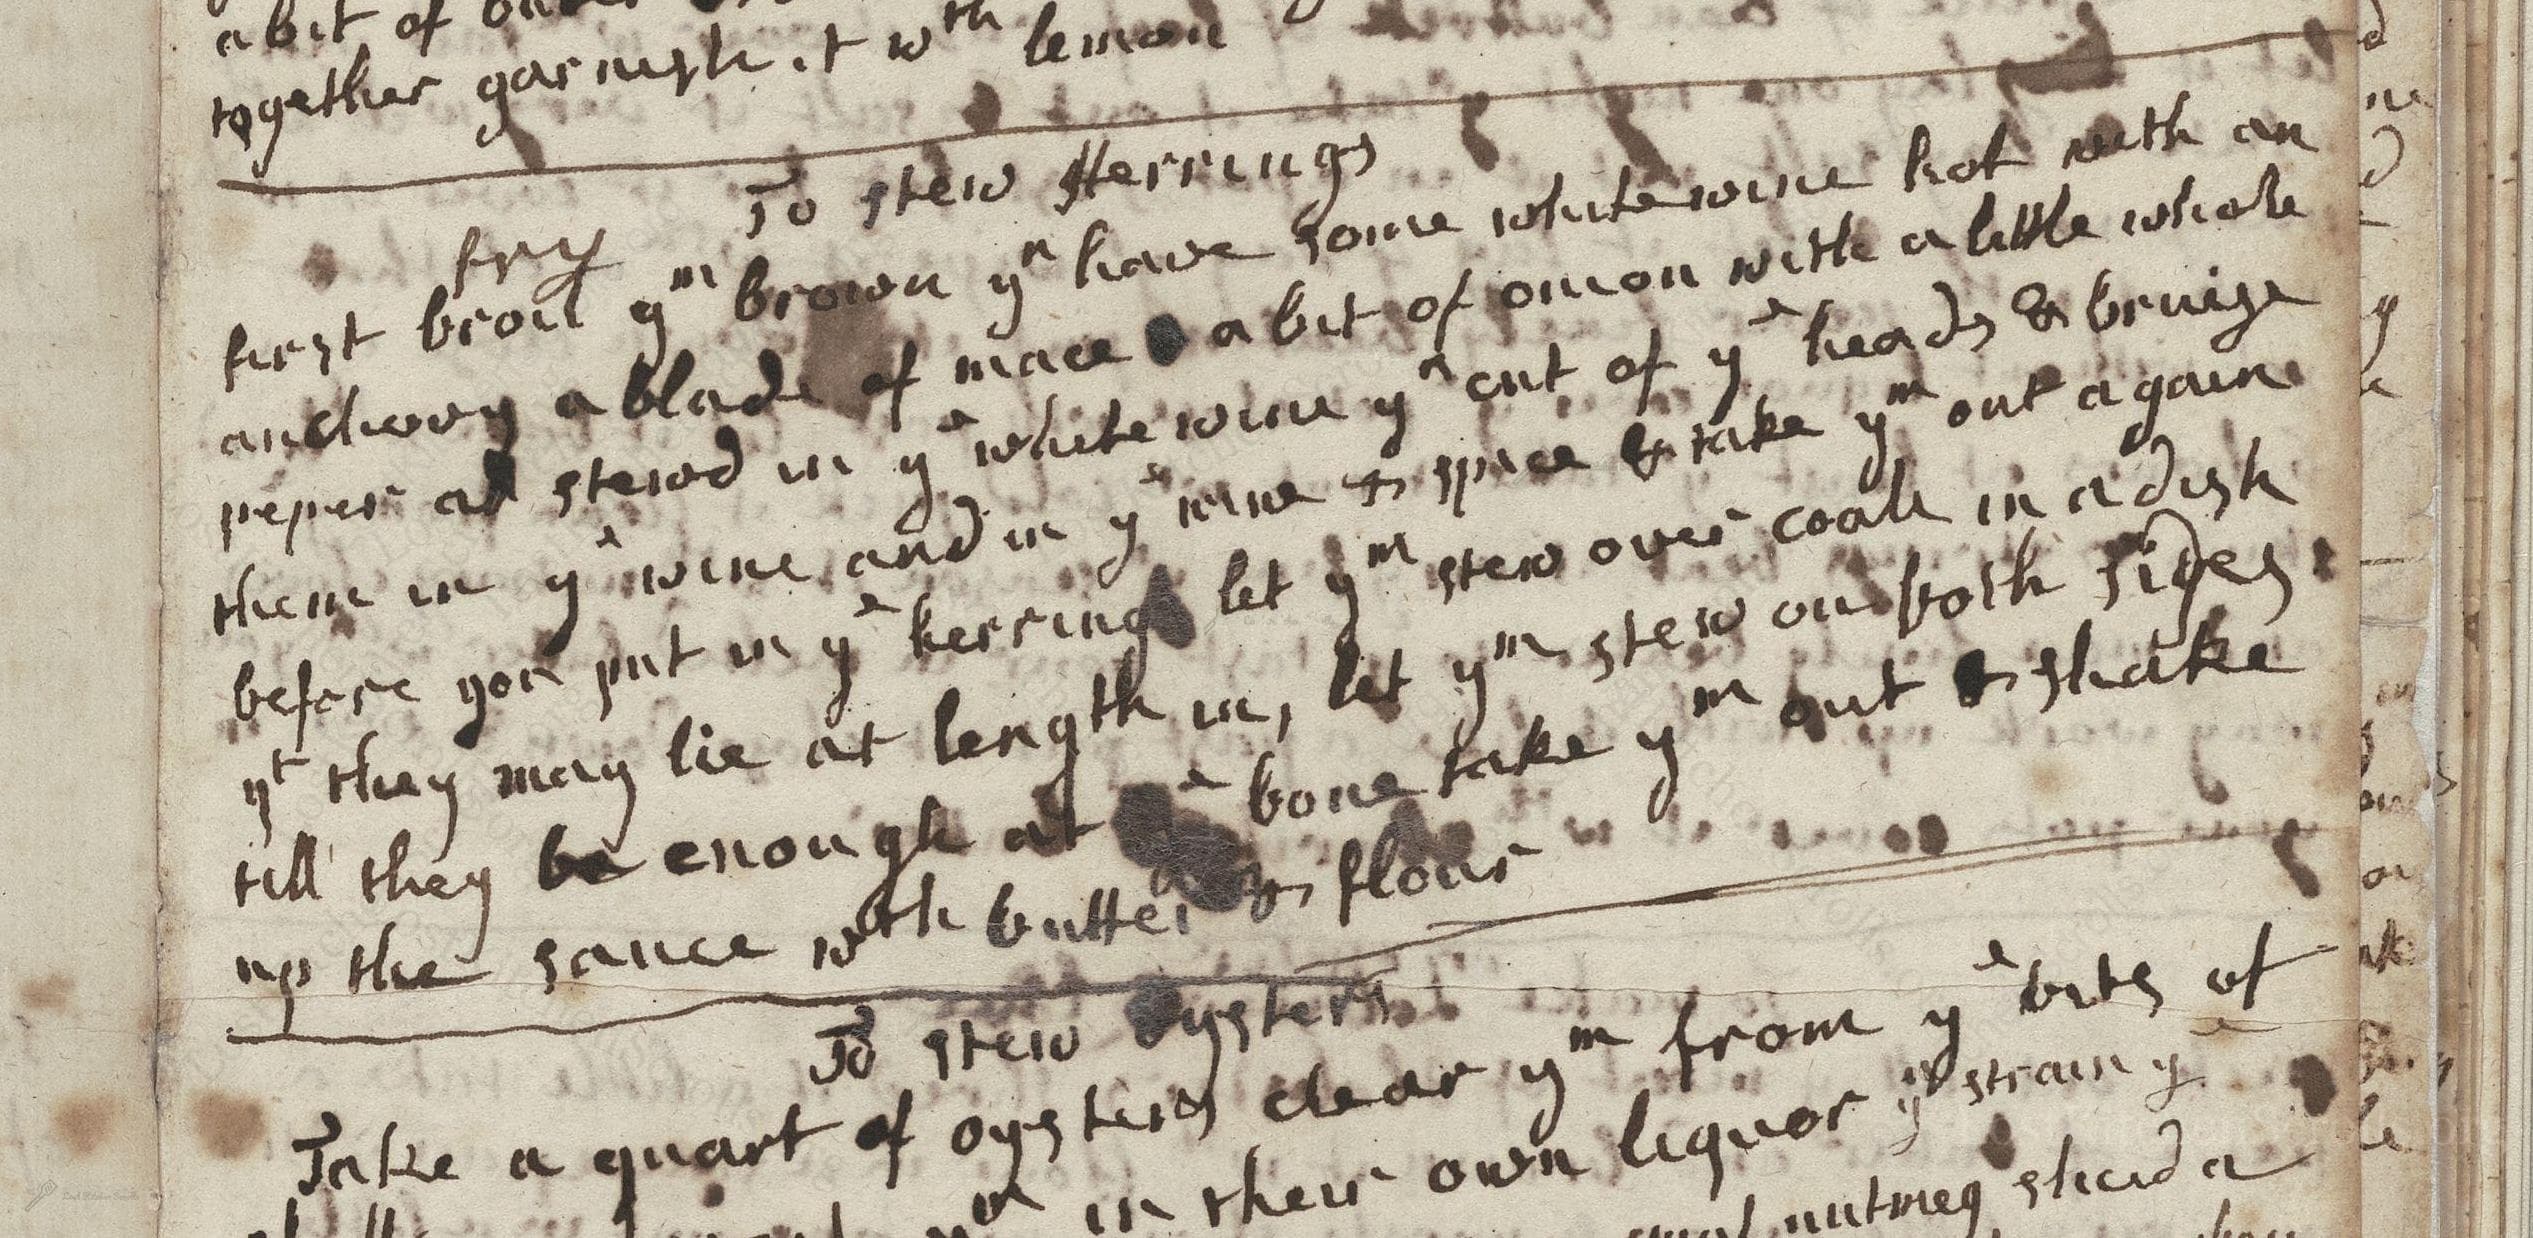 a bit of
together garnish it wth lemon
To stew Herrings
fry
first broil ym brown yn have some whitewine hot with an
anchovy a blade of mace a bit of onion with a little whole
peper al stewd in ye white wine yn cut of ye heads & bruise
them in ye wine and in ye wine & spice & take ym out again
before you put in ye herrings let ym stew over coals in a dish
yt they may lie at length in, let ym stew on both sides
till they be enough at ye bone take ym out & shake
up the sauce wth butter & flour
To stew oysters
Take a quart of oysters clear ym from ye bits of
ym in their own liquor yn strain ye
nutmeg slised a